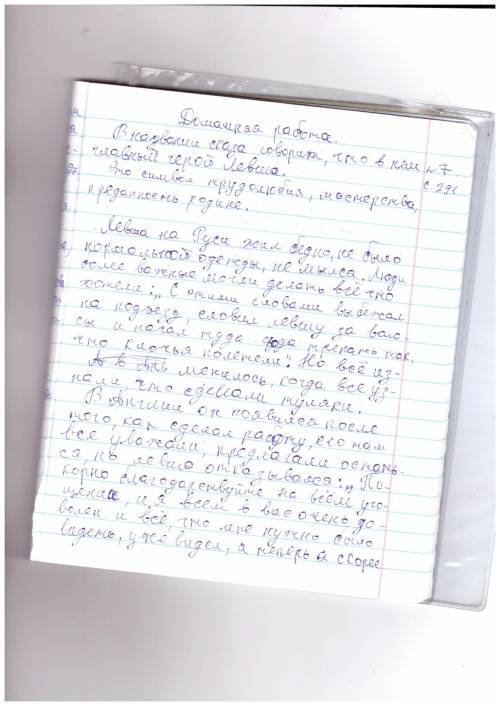 Домашняя работа.
В названии сказа говорится, что в нём №7
главный герой Левша. с. 291
Это символ трудолюбия, мастерства,
преданность родине.
Левша на Руси жил бедно, не было
нормальной одежды, не мылся. Люди
более важные могли делать всё что
хотели: „С этими словами выбежал
на подъезд, словил левшу за воло-
сы и начал туда сюда трепать так
что клочья полетели". Но всё из-
менилось, когда все уз-
нали что сделали туляки.
В Англии он появился после
того, как сделал работу, его там
все уважали, предлагали остать-
ся, но левша отказывался: „По-
корно благодарствуйте на всём уго-
щении, и я всем у вас очень до-
волен и всё, что мне нужно было
видеть, уже видел, а теперь я скорее